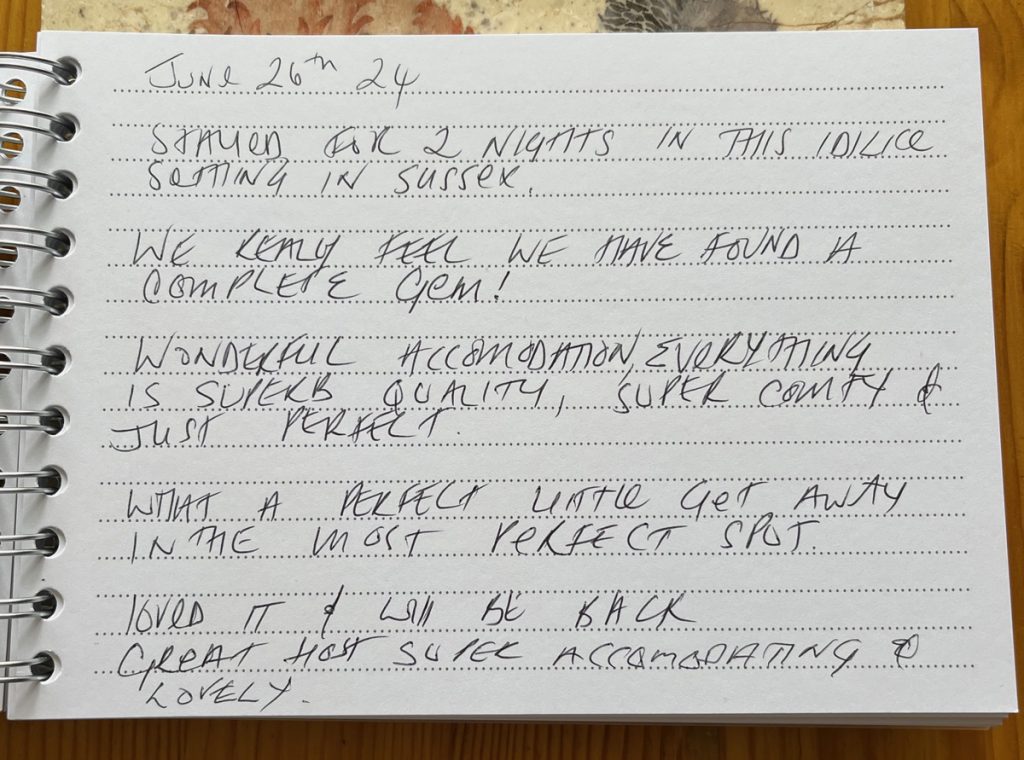 JUNE 26th 24
STAYED FOR 2 NIGHTS IN THIS IDILICE
SETTING IN SUSSEX.
WE REALY FEEL WE HAVE FOUND A
COMPLETE GEM!
WONDERFUL ACCOMODATION, EVERYTHING
IS SUPERB QUALITY, SUPER COMFY &
JUST PERFECT.
WHAT A PERFECT LITTLE GET AWAY
IN THE MOST PERFECT SPOT.
LOVED IT & WILL BE BACK
GREAT HOST SUPER ACCOMODATING &
LOVELY.